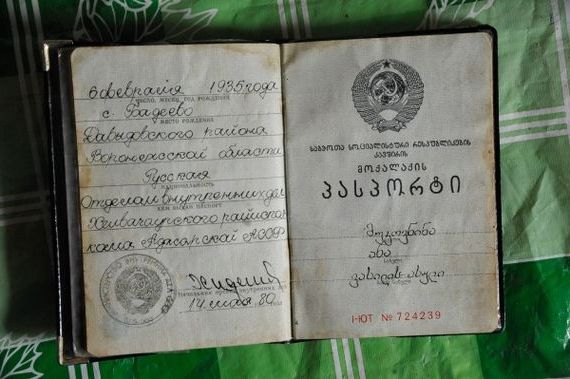 6 февраля 1935 года
число, месяц, год рождения
с. Бадеево
место рождения
Давыдовского района
Воронежской области
Русская
национальность
Отделом внутренних дел
кем выдан паспорт
Хелвачаурского райиспол-
кома Аджарской АССР
14 мая 80
საბჭოთა სოციალისტური რესპუბლიკების
კავშირის
მოქალაქის
პასპორტი
ანა
სახელი
ვასილის ასული
I-ЮТ № 724239